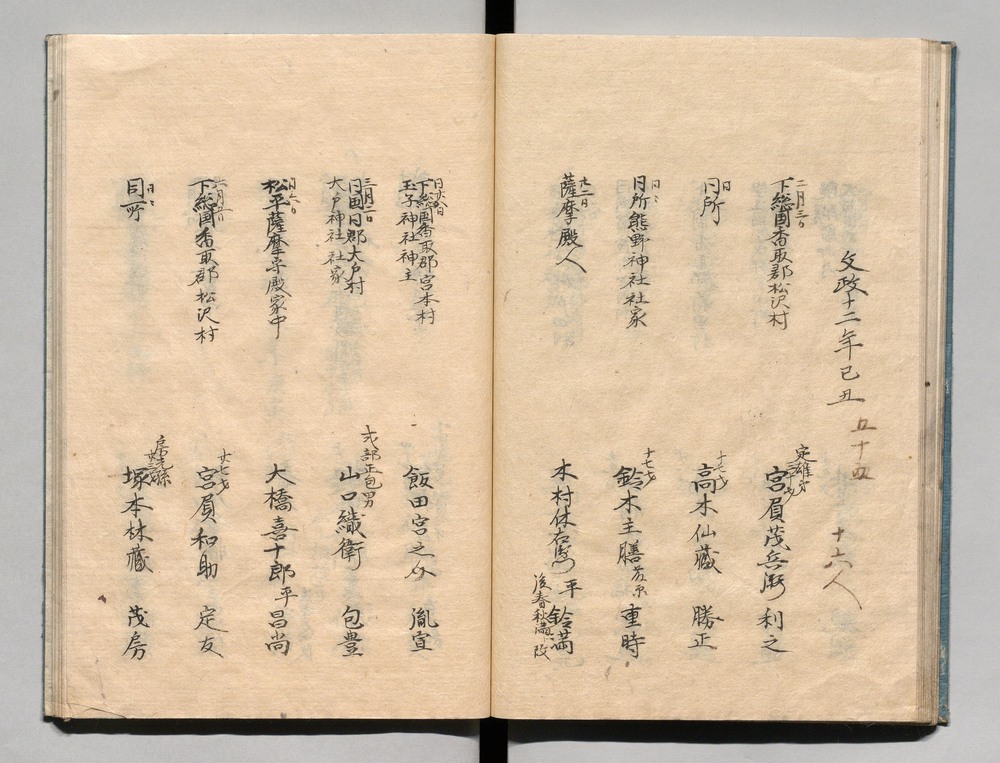 文政十二年己丑 五十四 十六人
二月三日
下総国香取郡松沢村
定雄男
宮負茂兵衛 利之
同
同所
十七才
高木仙蔵 勝正
同所熊野神社社家
十七才
鈴木主膳 重時
廿二日
薩摩殿人
木村休右衛門 平 鈴満
後春秋満ト改
下総国香取郡宮本村
玉子神社神主
飯田宮之介 胤宣
三月二日
同国同郡大戸村
大戸神社社家
式部正包男
山口織衛 包豊
松平薩摩守殿家中
大橋喜十郎 平 昌尚
下総国香取郡松沢村
廿七才
宮負和助 定友
同所
塚本林蔵 茂房